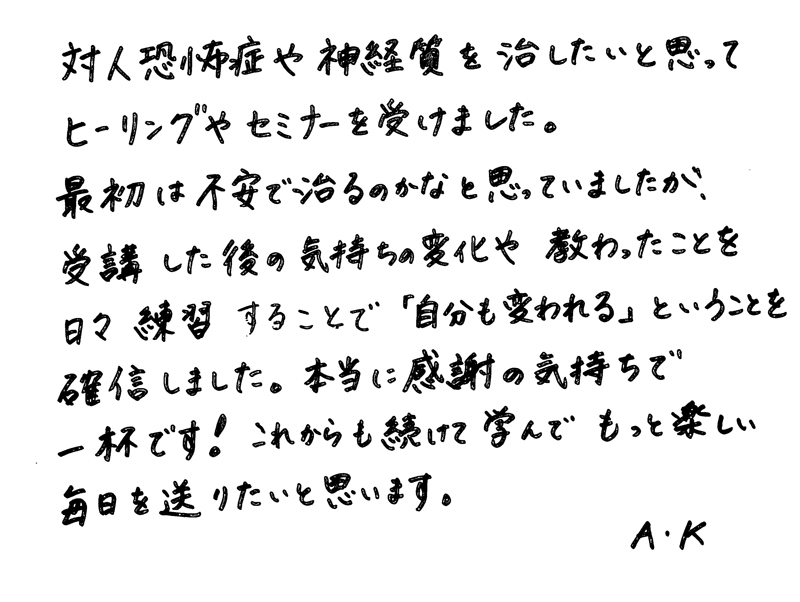 対人恐怖症や神経質を治したいと思って
ヒーリングやセミナーを受けました。
最初は不安で治るのかなと思っていましたが、
受講した後の気持ちの変化や教わったことを
日々練習することで「自分も変われる」ということを
確信しました。本当に感謝の気持ちで
一杯です！これからも続けて学んでもっと楽しい
毎日を送りたいと思います。
A・K